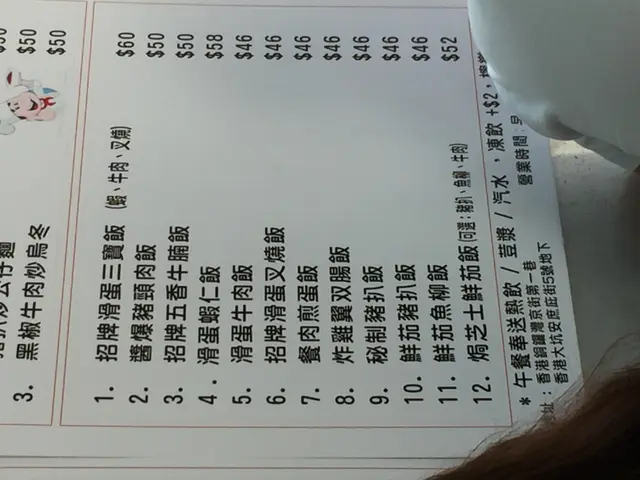 $50
炒公仔麵 $50
3. 黑椒牛肉炒烏冬 $50
1. 招牌滑蛋三寶飯 (蝦、牛肉、叉燒) $60
2. 醬爆豬頸肉飯 $50
3. 招牌五香牛腩飯 $50
4. 滑蛋蝦仁飯 $58
5. 滑蛋牛肉飯 $46
6. 招牌滑蛋叉燒飯 $46
7. 餐肉煎蛋飯 $46
8. 炸雞翼双腸飯 $46
9. 秘制豬扒飯 $46
10. 鮮茄豬扒飯 $46
11. 鮮茄魚柳飯 $46
12. 焗芝士鮮茄飯 (可選：豬扒、魚柳、牛肉) $52
* 午餐奉送熱飲 / 荳漿 / 汽水，凍飲 +$2，
址：香港銅鑼灣京街第一巷 營業時間：早
香港大坑安庶庇街5號地下